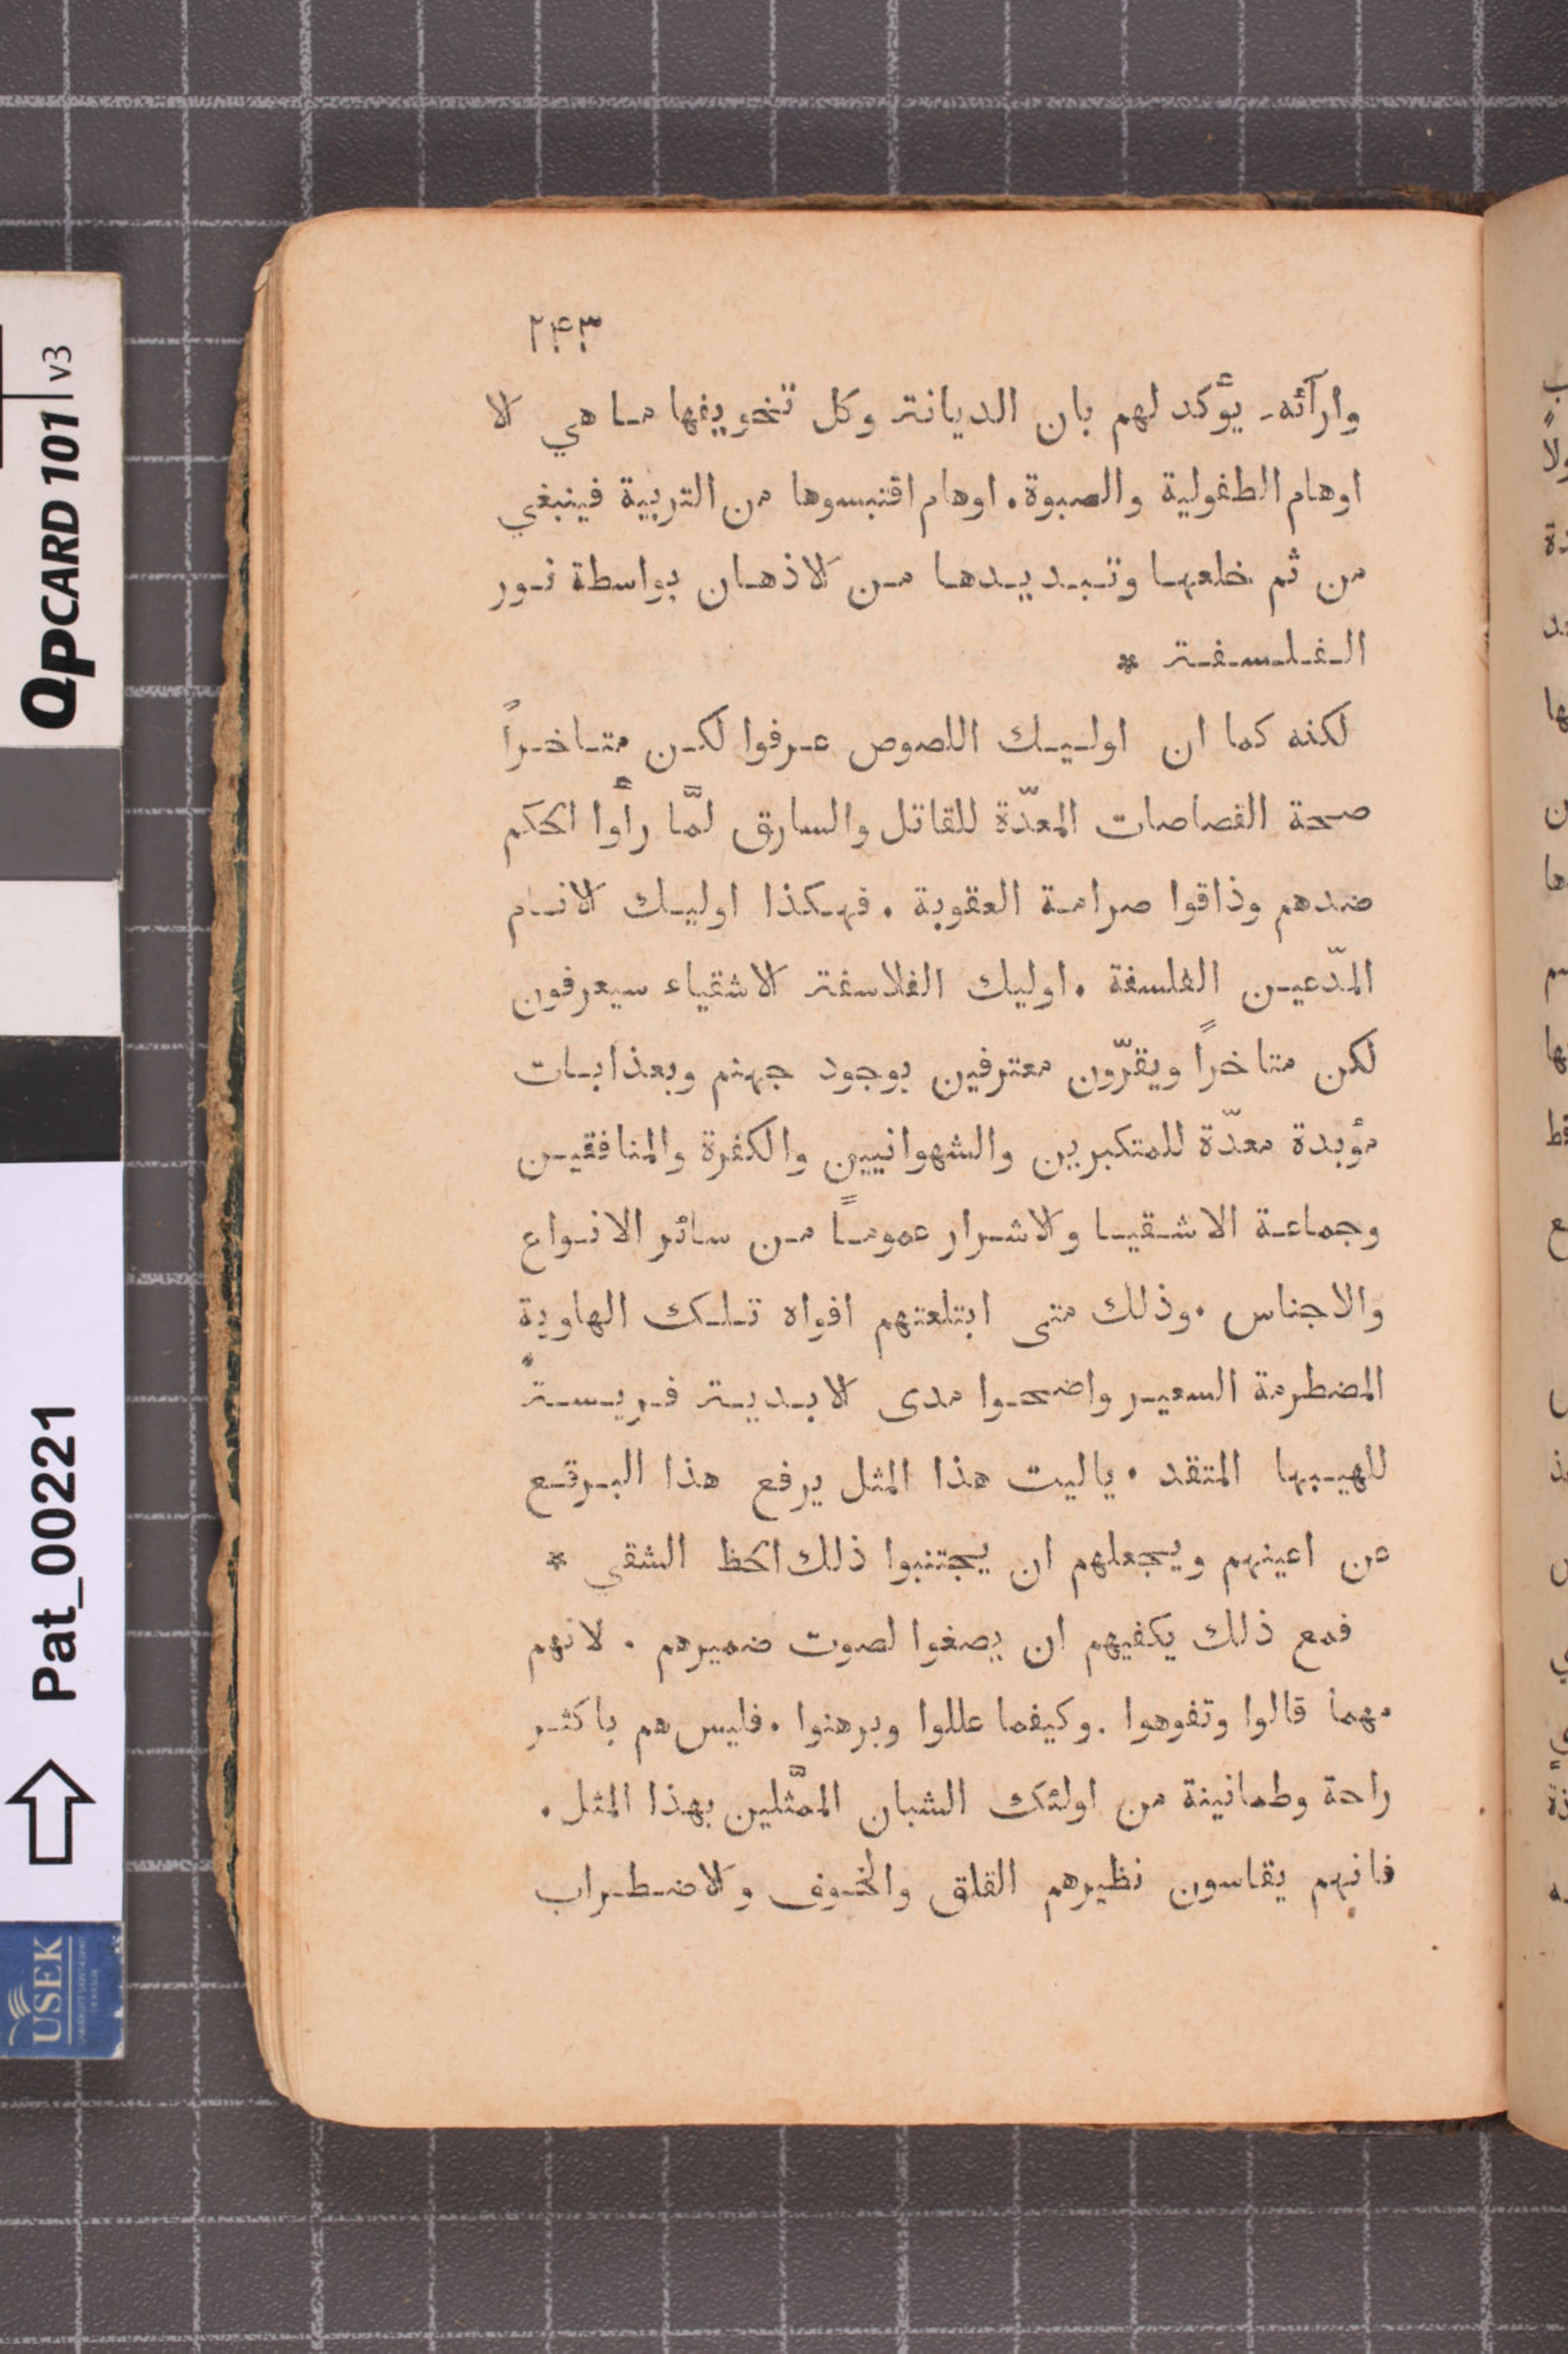 ٢٤٣
وارآئه يؤكد لهم بان الديانة وكل تخويفها ما هي الا
اوهام الطفولية والصبوة. اوهام اقتبسوها من التربية فينبغي
من ثم خلعها وتبديدها من الاذهان بواسطة نور
الفلسفة *
لكنه كما ان اوليك اللصوص عرفوا لكن متاخراً
صحة القصاصات المعدّة للقاتل والسارق لمّا رأوا الحكم
ضدهم وذاقوا صرامة العقوبة. فهكذا اوليك الانام
المدّعين الفلسفة. اوليك الفلاسفة الاشقياء سيعرفون
لكن متاخراً ويقرّون معترفين بوجود جهنم وبعذابات
مؤبدة معدّة للمتكبرين والشهوانيين والكفرة والمنافقين
وجماعة الاشقيا والاشرار عموماً من سائر الانواع
والاجناس. وذلك متى ابتلعتهم افواه تلك الهاوية
المضطرمة السعير واضحوا مدى الابدية فريسةً
للهيبها المتقد. ياليت هذا المثل يرفع هذا البرقع
عن اعينهم ويجعلهم ان يجتنبوا ذلك الحظ الشقي *
فمع ذلك يكفيهم ان يصغوا لصوت ضميرهم. لانهم
مهما قالوا وتفوهوا. وكيفما عللوا وبرهنوا. فليس هم باكثر
راحة وطمانينة من اولئك الشبان الممثّلين بهذا المثل.
فانهم يقاسون نظيرهم القلق والخوف والاضطراب
QPCARD 101 v3
Pat_00221
USEK